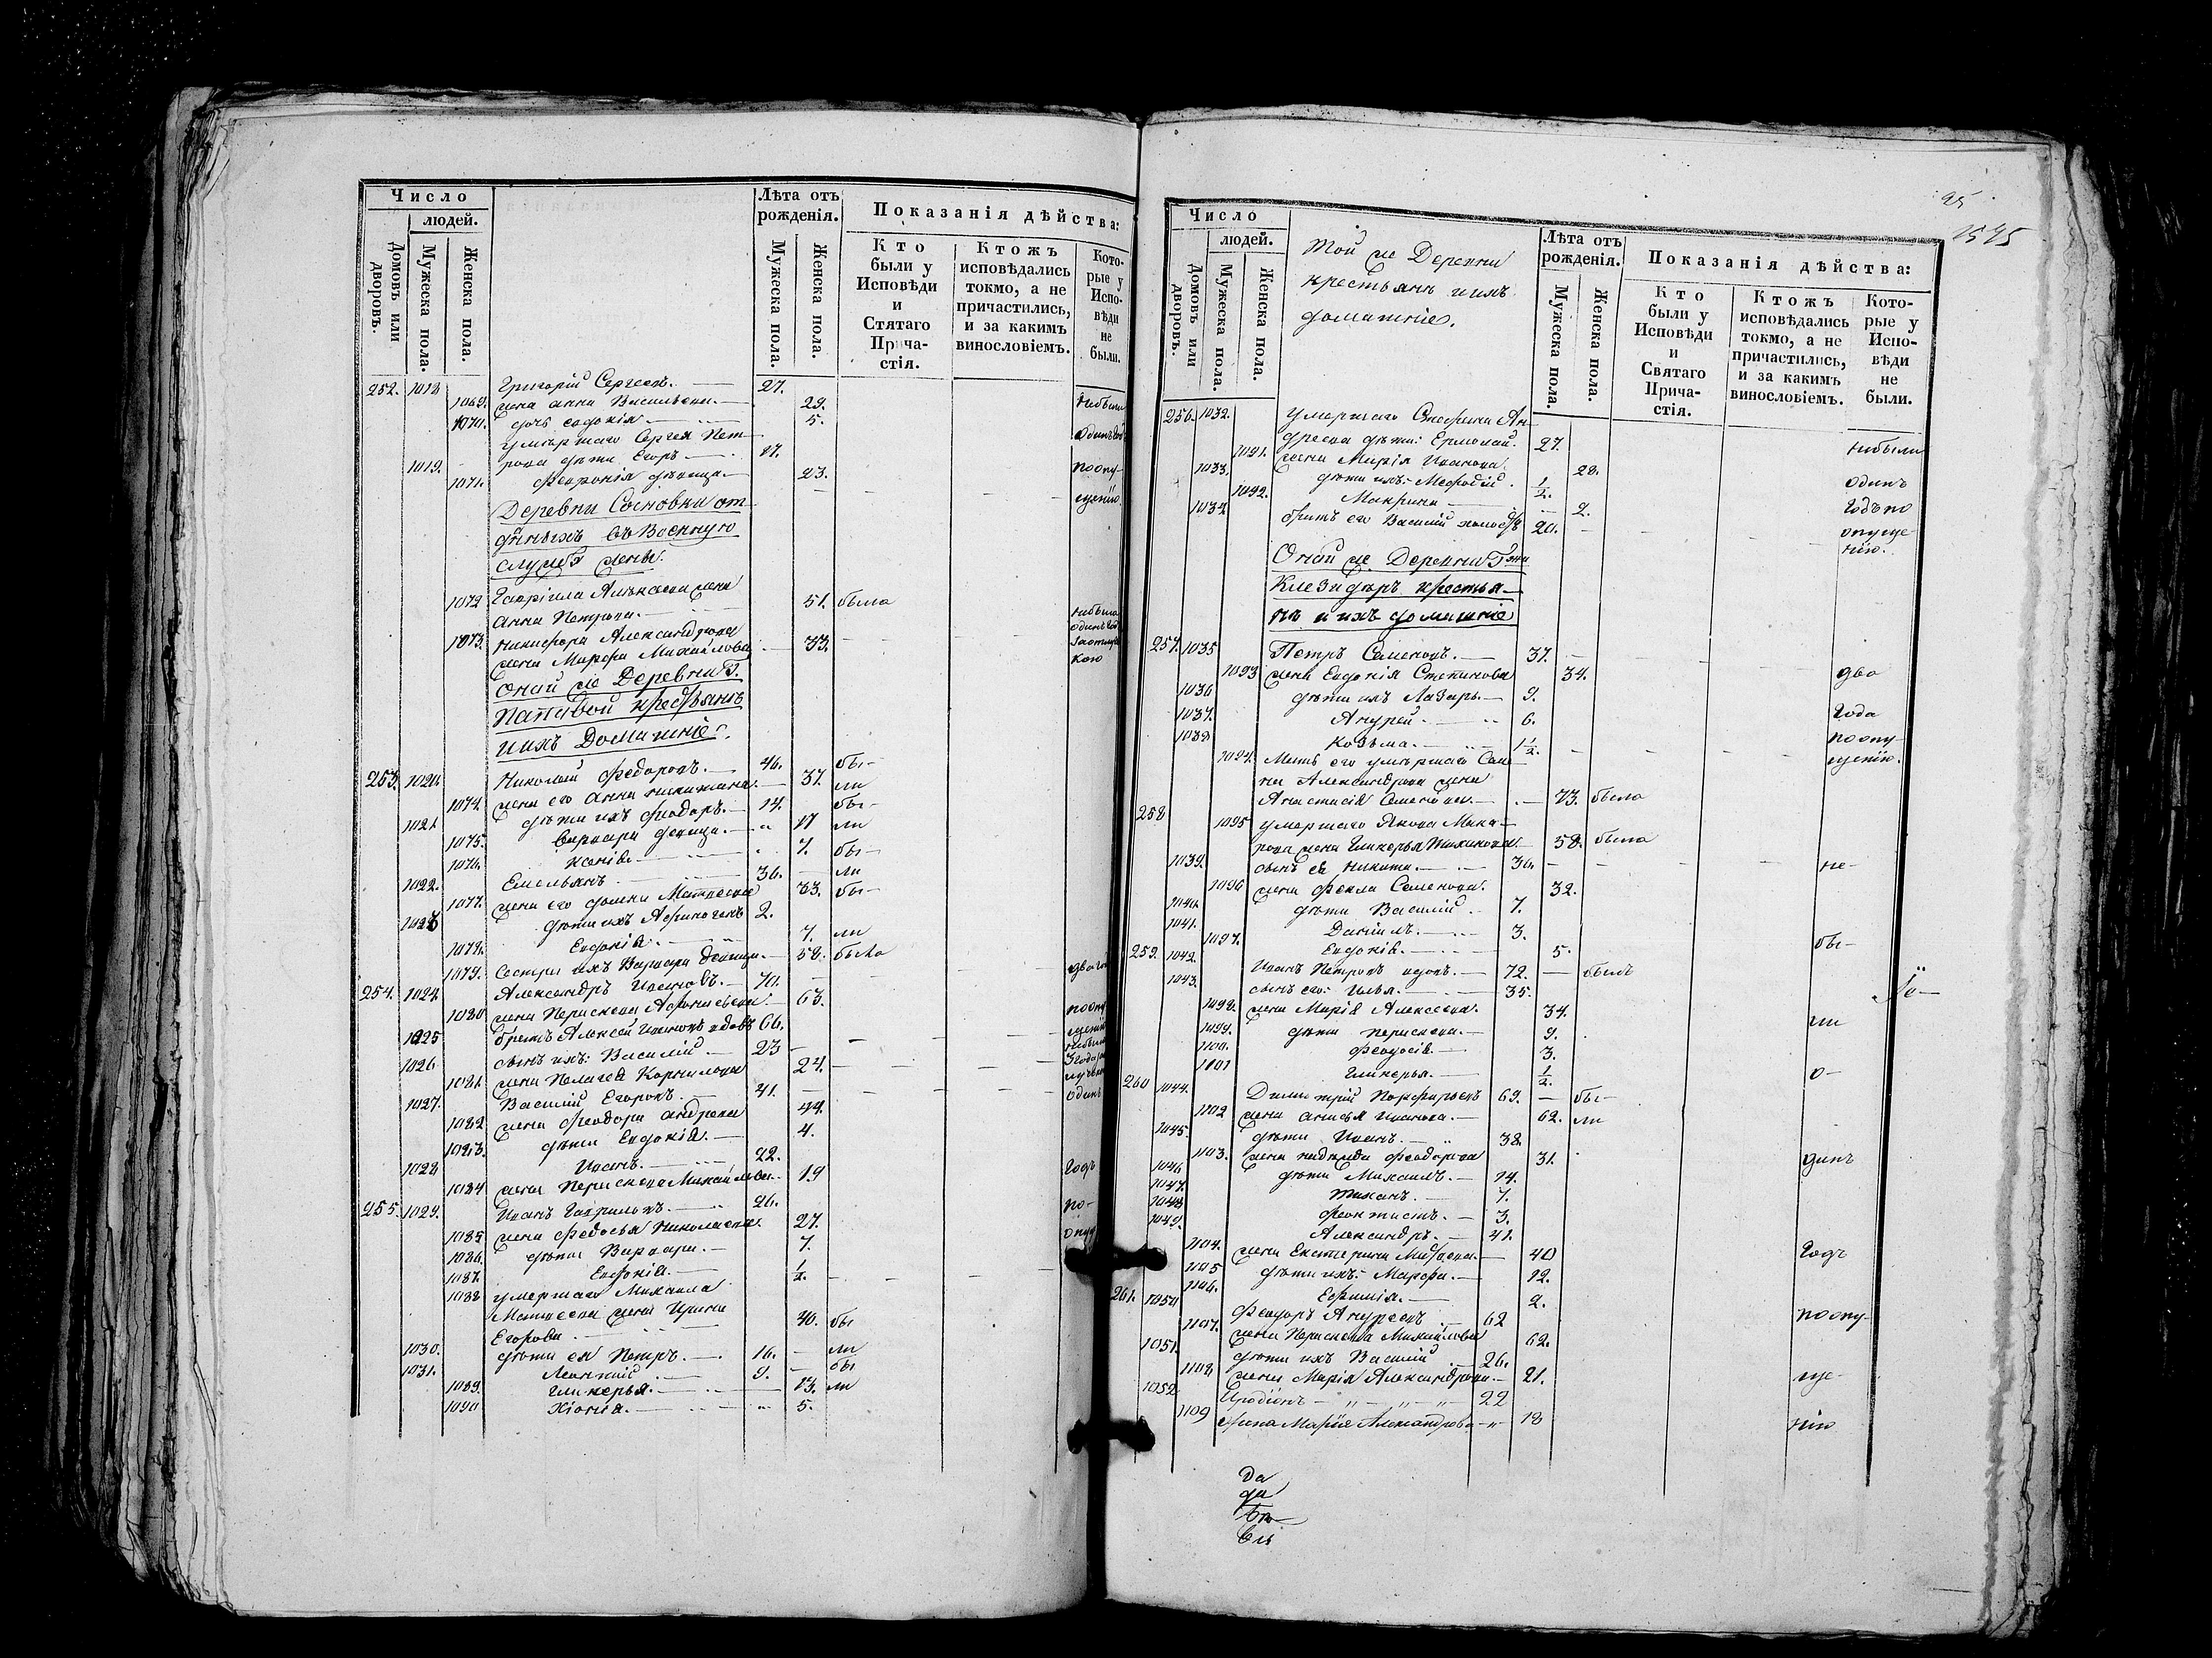 Число
людей.
Домовъ или дворовъ.
Мужеска пола.
Женска пола.
Лѣта отъ рожденія.
Мужеска пола.
Женска пола.
Показанія дѣйства:
Кто были у Исповѣди и Стятаго Прича-стія.
Ктожъ исповѣдались токмо, а не причастились, и за какимъ винословіемъ.
Кото-рые у Испо-вѣди не были.
252. 1018 Григорій Сергеевъ. 27.
1069. жена Анна Васильева. 29. Небыли
1070. дочь Евдокія 5.
умершаго Сергея Пет- одинъ годъ
1019. рова дѣти Егоръ 17.
1071. Феврония дѣвица 23. поопу-
щенію
Деревни Сосновки от
даныхъ въ Военную
службу жены.
Гавріила Алексѣева жена
1072 Анна Петрова. 51. была
1073. Никифора Александрова небыла одинъ годъ
жена Марфа Михайлова 33. заотлуч
кою
Оной же Деревни Г.
крестьянъ
и ихъ Домашніе.
253. 1020. Николай Федоровъ. 46. бы-
1074. жена его Анна Никитина 37. ли
1021 дѣти ихъ Феодоръ. 14. бы-
1075. Варвара девица 17 ли
1076. Ксенія 7. бы-
1022. Емельянъ 36. ли
1077. жена его Матвеева 33. бы-
1023 дѣти ихъ Афиногенъ 2.
1078. Евдокія 7. ли
1079. Сестра ихъ Варвара девица 58. была
254. 1024. Александръ Ивановъ. 70. два го
1080. жена Парасковья Афонасьева 63.
1025 братъ Алексей Ивановъ вдовъ 66. поопу щенію
1026 сынъ ихъ: Василій 23 небыли
1081. жена Пелагея Корнилова 24. 3 года
1027. Василій Егоровъ. 41. одинъ
1082 жена Феодора Андреева 44.
1083. дѣти Евдокія. 4.
1028 Иванъ. 22. годъ
1084 жена Парасковья Михайлова 19
255. 1029. Иванъ Гавриловъ 26. по-
1085 жена Федосья Николаева 27. опущ
1086. дѣти Варвара. 7.
1087. Евдокія. 1/2.
1088 умершаго Михаила
Матвеева жена Ирина
Егорова 40. бы
1030. дѣти ея Петръ. 16. ли
1031. Леонтий 9. бы
1089. Гликерья. 13. ли
1090 Хіонія. 5.
25
1545
Число
людей.
Домовъ или дворовъ.
Мужеска пола.
Женска пола.
Той же Деревни
крестьянъ и ихъ
домашніе.
Лѣта отъ рожденія.
Мужеска пола.
Женска пола.
Показанія дѣйства:
Кто были у Исповѣди и Святаго Прича-стія.
Ктожъ исповѣдались токмо, а не причастились, и за какимъ винословіемъ.
Кото-рые у Испо-вѣди не были.
256. 1032. умершаго Онофрия Ан-
дреева дѣти: Ермолай. 27. небыли
1091. жена Марія Иванова. 28.
1033. дѣти ихъ: Мефодій. 1/2. одинъ
1092. Макрина 2. годъ по
1034 братъ его Василій холостъ 20. опуще
нію.
Оной же Деревни Гжи
крестья-
нъ и ихъ домашніе
257. 1035 Петръ Семеновъ. 37.
1093 жена Евдокія Степанова 34. два
1036 дѣти ихъ Лазарь. 9.
1037. Андрей 6. года
1038 Козьма. 1 1/2. поопу
1094. Мать его умершаго Семе щенію.
на Александрова жена
Анастасія Семенова. 73. была
258 1095 умершаго Якова Мака-
рова жена Гликерья Тихонова 58. была
1039. сынъ ея Никита. 36. не-
1096 жена Фекла Семенова. 32.
1040. дѣти Василій 7.
1041. Даніилъ. 3.
1097. Евдокія. 5. бы-
259. 1042. Иванъ Петровъ вдовъ. 72. былъ
1043. сынъ его: Илья. 35.
1098. жена Марія Алексеева. 34. ли
1099. дѣти Парасковья. 9.
1100. Феодосія. 3.
1101 Гликерья. 1/2. о-
260 1044. Димитрій Порфирьевъ 69. бы-
1102 жена Анисья Иванова. 62. ли
1045. дѣти Иванъ. 38.
1103. жена Феодорова 31. динъ
1046 дѣти Михаилъ. 14.
1047. Тиханъ. 7.
1048 Феоктистъ. 3.
1049. Александръ. 41.
1104. жена Екатерина 40 годъ
1105 дѣти ихъ: Марфа. 12.
1106. Ефимія. 2.
261. 1050 Феодоръ Андреевъ 62 поопу-
1107. жена Парасковья Михайлова 62.
1051. дѣти ихъ Василій 26.
1108 жена Марія Александрова 21. ще-
1052 Иродіонъ 22
1109 жена Марія Александрова 18 нію